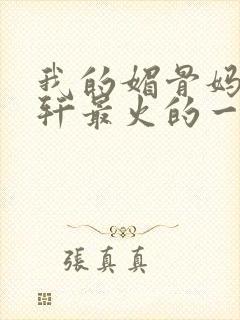 我的媚骨妈
轩最火的一
張真真